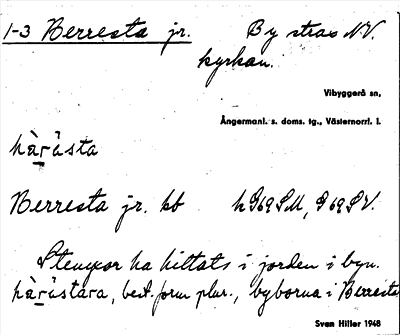 1-3 Berresta jr. By strax N.V.
kyrkan.
Vibyggerå sn,
Ångermanl. s. doms. tg., Västernorrl. l.
hà̀rásta
Berresta jr. kb h G69SM, G69SV.
Stenyxor ha hittats i jorden i byn.
best. form plur., byborna i Berresta
Sven Hiller 1948